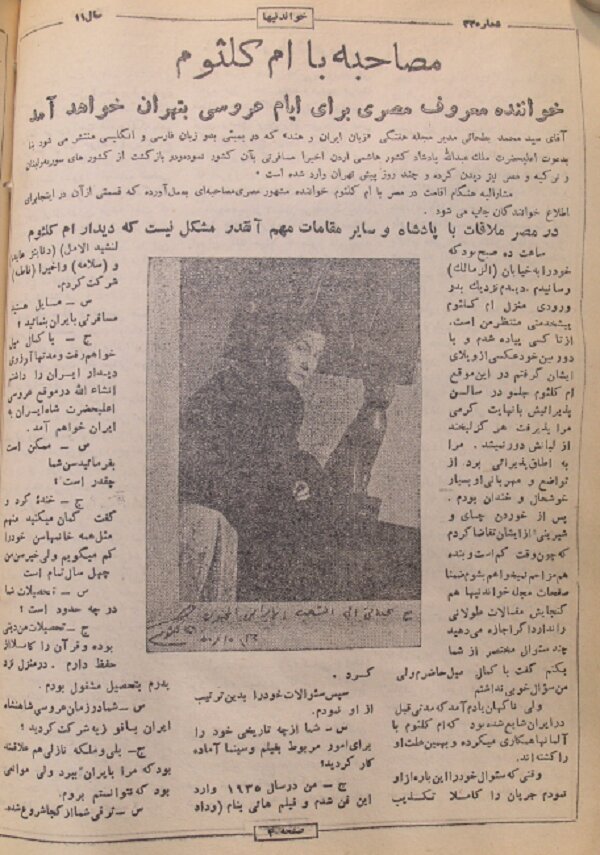 شماره ۳۳
خواندنیها
سال ۱۱
مصاحبه با ام کلثوم
خواننده معروف مصری برای ایام عروسی بتهران خواهد آمد
آقای سید محمد طحائی مدیر مجله هفتگی «زبان ایران و هند» که در بمبئی بدو زبان فارسی و انگلیسی منتشر می شود بنا
بدعوت اعلیحضرت ملک عبدالله پادشاه کشور هاشمی اردن اخیرا مسافرتی بآن کشور نموده‌ودر بازگشت از کشور های سوریه‌ولبنان
و ترکیه و مصر نیز دیدن کرده و چند روز پیش تهران وارد شده است
مشارالیه هنگام اقامت در مصر با ام کلثوم خواننده مشهور مصری‌مصاحبه‌ای بعمل‌آورده که قسمتی ازآن در اینجابرای
اطلاع خوانندگان چاپ می شود .
در مصر ملاقات با پادشاه و سایر مقامات مهم آنقدر مشکل نیست که دیدار ام کلثوم
ساعت ده صبح بود که
خودرا به خیابان (الزمالك)
رسانیدم . دیدم نزدیك بدو
ورودی منزل ام کلثوم
پیشخدمتی منتظر من است.
ازتاکسی پیاده شدم و با
دوربین خودعکسی از ویلای
ایشان گرفتم در این موقع
ام کلثوم جلو در سالن
پذیرائیش بانهایت گرمی
مرا پذیرفت هر گز لبخند
از لبانش دور نمیشد . مرا
به اطاق پذیرائی برد از
تواضع و مهربانی او بسیار
خوشحال و خندان بودم .
پس از خوردن چای و
شیرینی از ایشان تقاضا کردم
که چون وقت کم است و بنده
هم مزاحم نمیخواهم بشوم ضمنا
صفحات مجله خواندنیها هم
گنجایش مقالات طولانی
را ندارد اگر اجازه می دهید
چند سئوال مختصر از شما
بکنم گفت با کمال میل حاضرم ولی
من سؤال خوبی نداشتم
ولی ناگهان یادم آمد که مدتی قبل
در ایران شایع شده بود که ام کلثوم با
آلمانها همکاری میکرده و بهمین علت او
را کشته اند.
وقتی که سئوال خودرا این باره از او
نمودم جریان را کاملا تکذیب
کرد .
سپس سئوالات خودرا بدین ترتیب
از او نمودم.
س – شما از چه تاریخی خود را
برای امور مربوط بفیلم و سینما آماده
کار کردید؟
ج – من در سال ۱۹۳۵ وارد
این فن شدم و فیلم هائی بنام (وداد
لنشید الامل) (دنانیر عایده)
و (سلامه) و اخیرا (فاطمه)
شرکت کردم.
س – مسایل هستید
مسافرتی بایران بنمائید ؟
ج – با کمال میل
خواهم رفت و مدتها آرزوی
دیدار ایران را داشتم
انشاء الله در موقع عروسی
اعلیحضرت شاه ایران به
ایران خواهم آمد .
س – ممکن است
بفرمائید سن شما
چقدر است ؟
ج – خندهٔ کرد و
گفت گمان میکنید منهم
مثل همه خانمها سن خودرا
کم میگویم ولی خیر سن من
چهل سال تمام است
س – تحصیلات شما
در چه حدود است ؟
ج – تحصیلات من دینی
بوده و قرآن را کاملا از
حفظ دارم . در منزل نزد
پدرم بتحصیل مشغول بودم .
س – شما در زمان عروسی شاهنشاه
ایران با فوزیه شرکت کردید ؟
ج – بلی و ملکه نازلی هم علاقه
بود که مرا بایران ببرد ولی موانعی
بود که نتوانستم بروم .
س – ترقی شما از کجا شروع شد.
صفحه ۳۰